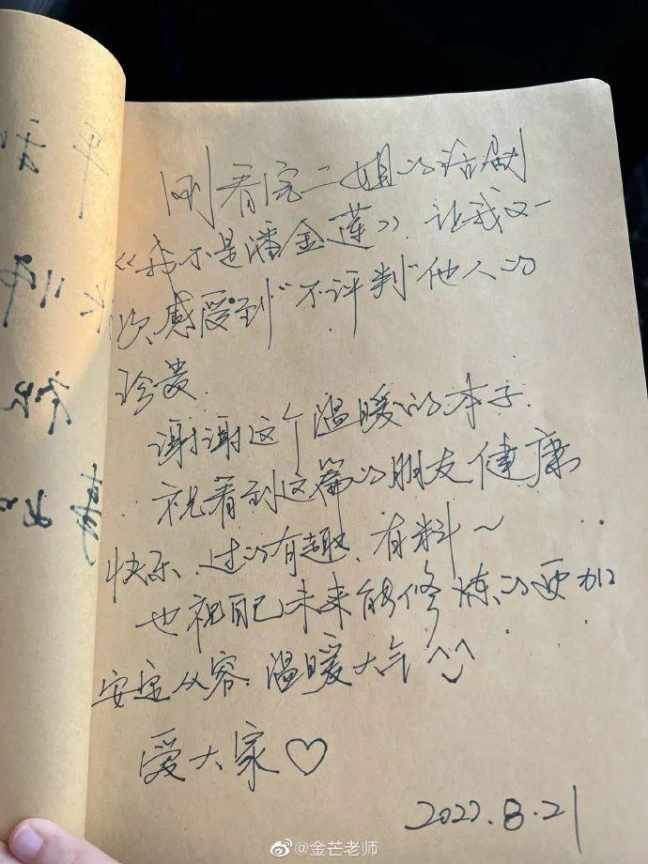 刚看完二姐的话剧
《我不是潘金莲》.让我又一
次感受到“不评判”他人的
珍贵.
谢谢这个温暖的本子.
祝看到这篇的朋友健康
快乐、过的有趣、有料～
也祝自己未来能修炼的更加
安定从容、温暖大气^^
爱大家♡
2022.8.21
@金芒老师